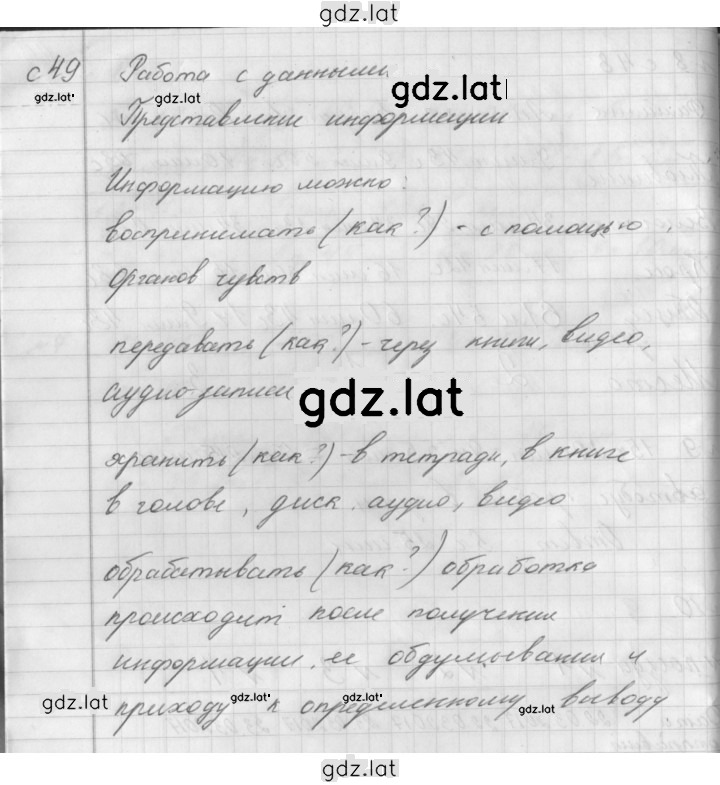 gdz.lat
с 49 Работа с данными
gdz.lat
gdz.lat
Представление информации
Информацию можно:
воспринимать (как?) - с помощью
органов чувств
передавать (как?) - через книги, видео,
аудио-записи
gdz.lat
хранить (как?) - в тетради, в книге
в голове, диск. аудио, видео
обрабатывать (как?) обработка
происходит после получения
информации, ее обдумывания и
приходу к определенному выводу
gdz.lat
gdz.lat
gdz.lat
gdz.lat